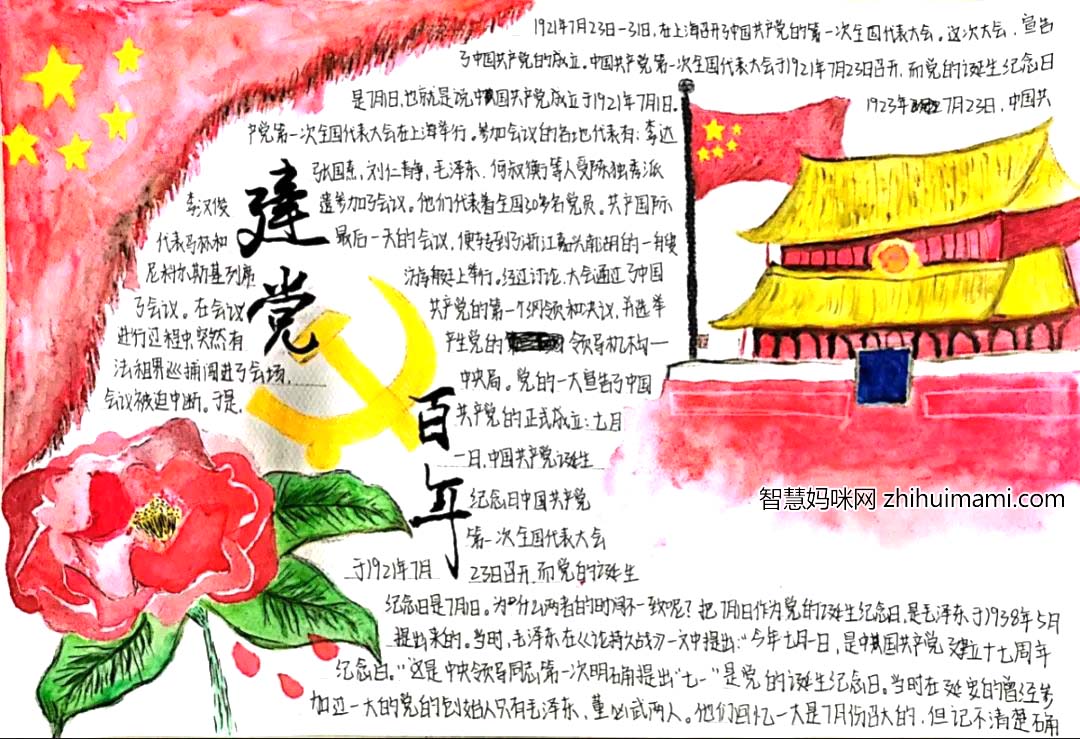 1921年7月23日—31日,在上海召开了中国共产党的第一次全国代表大会。这次大会,宣告
了中国共产党的成立。中国共产党第一次全国代表大会于1921年7月23日召开,而党的诞生纪念日
是7月1日,也就是说中国共产党成立于1921年7月1日。
1923年 7月23日,中国共
产党第一次全国代表大会在上海举行。参加会议的各地代表有:李达
张国焘,刘仁静,毛泽东,何叔衡等人受陈独秀派
李汉俊
遣参加了会议。他们代表着全国50多名党员。共产国际
代表马林和
尼科尔斯基列席
了会议。在会议
进行过程中突然有
法租界巡捕闯进了会场,
会议被迫中断。于是,
最后一天的会议,便转到了浙江嘉兴南湖的一艘
游船上举行。经过讨论,大会通过了中国
共产党的第一个纲领和决议,并选举
产生党的 领导机构一
中央局。党的一大宣告了中国
共产党的正式成立:七月
一日,中国共产党诞生
纪念日中国共产党
第一次全国代表大会
于1921年7月 23日召开,而党的诞生
纪念日是7月1日。为什么两者的时间不一致呢?把7月1日作为党的诞生纪念日,是毛泽东于1938年5月
提出来的。当时,毛泽东在《论持久战》一文中提出:“今年七月一日,是中国共产党建立十七周年
纪念日。”这是中央领导同志第一次明确提出“七一”是党的诞生纪念日。当时在延安的曾经参
加过一大的党的创始人只有毛泽东、董必武两人。他们回忆一大是7月份召大的,但记不清楚确
建党
百年
智慧妈咪网 zhihuimami.com